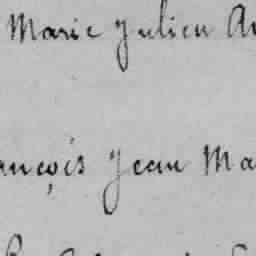 Marie Julien
ançois Jean Ma